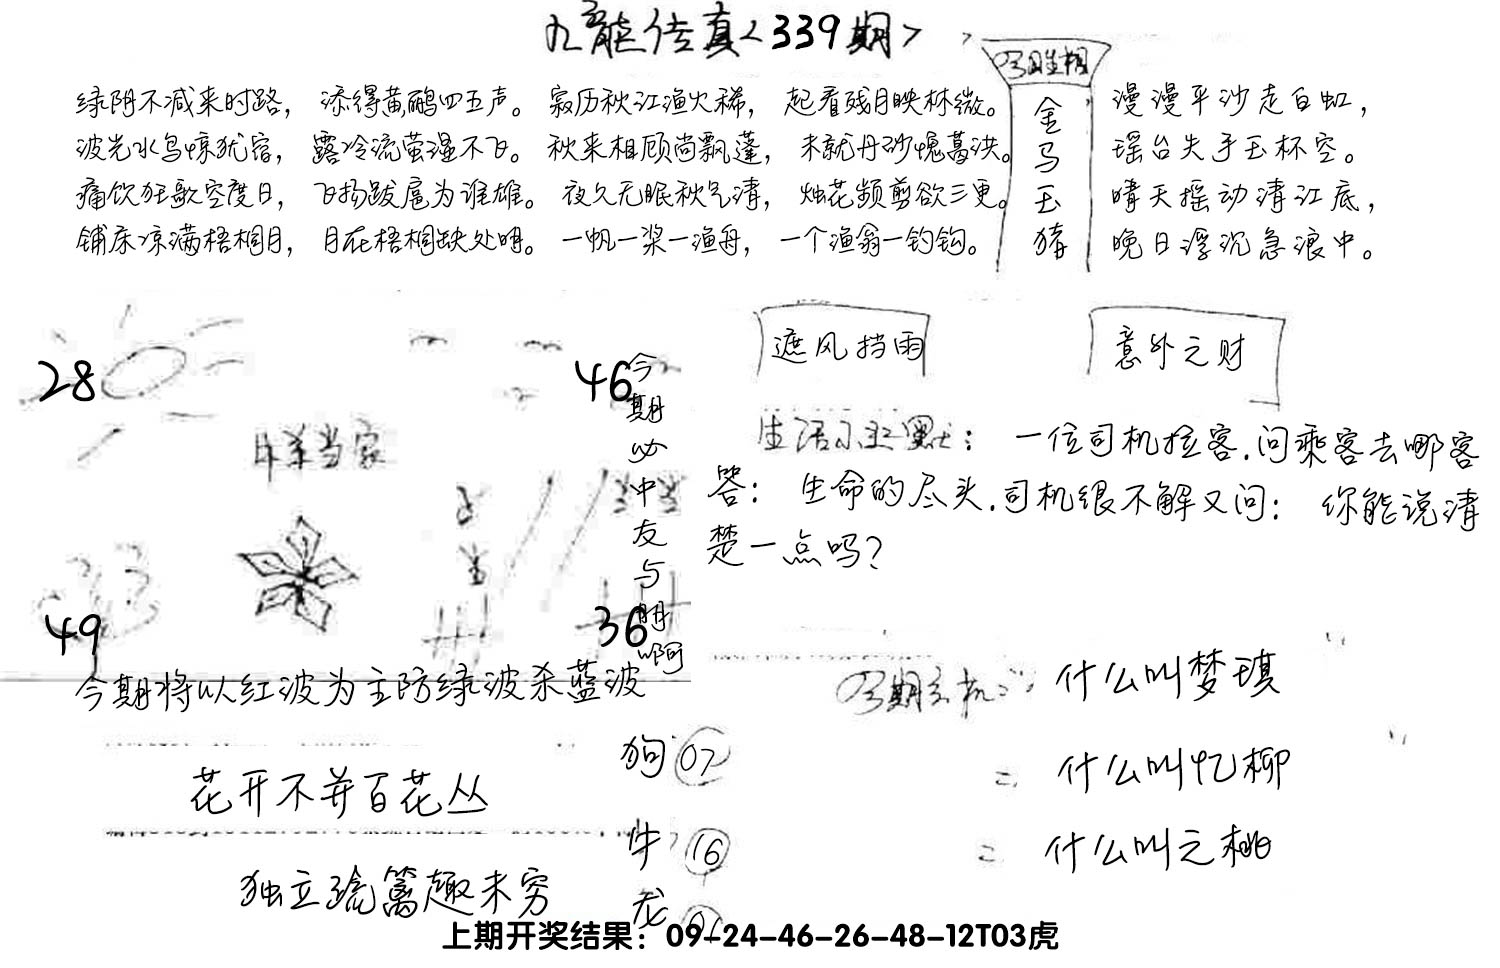 九龙传真<339期>
今日生相
金马玉猪
绿阴不减来时路， 添得黄鹂四五声。 寂历秋江渔火稀， 起看残月映林微。 漫漫平沙走白虹，
波光水鸟惊犹宿， 露冷流萤湿不飞。 秋来相顾尚飘蓬， 未就丹砂愧葛洪。 瑶台失手玉杯空。
痛饮狂歌空度日， 飞扬跋扈为谁雄。 夜久无眠秋气清， 烛花频剪欲三更。 晴天摇动清江底，
铺床凉满梧桐月， 月在梧桐缺处明。 一帆一桨一渔舟， 一个渔翁一钓钩。 晚日浮沉急浪中。
遮风挡雨
意外之财
28
46
牛羊当家
49
36
今期必中友与朋啊
生活小幽默： 一位司机拉客.问乘客去哪客
答： 生命的尽头.司机很不解又问： 你能说清
楚一点吗?
今期将以红波为主防绿波杀蓝波
今期玄机 什么叫梦琪
= 什么叫忆柳
= 什么叫之桃
花开不并百花丛
独立疏篱趣未穷
狗 07
牛 16
龙
上期开奖结果：09-24-46-26-48-12T03虎